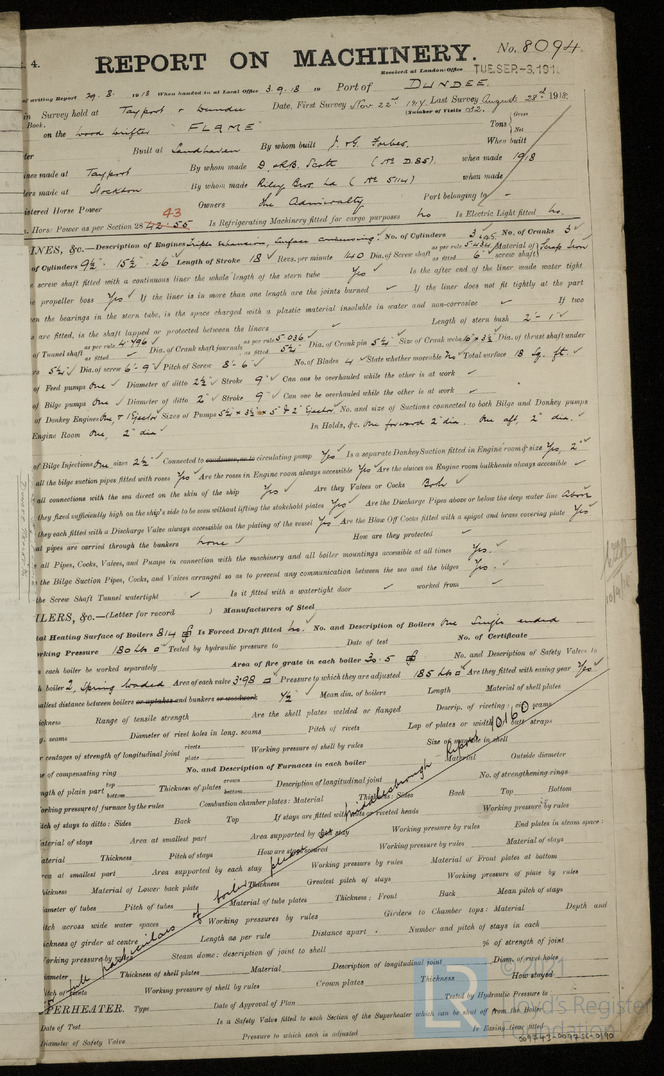 4.
REPORT ON MACHINERY.
No. 8094
Received at London Office TUE. SEP. -3. 191
of writing Report 29. 8. 1918 When handed in at Local Office 3.9.18 19 Port of DUNDEE.
Survey held at Tayport & Dundee Date, First Survey Nov. 22nd 1917 Last Survey August 28th 1918
(Number of Visits 52.
Book.
on the Wood Drifter "FLAME" Tons { Gross Net
Built at Sandhaven By whom built J. & G. Forbes. When built
made at Tayport By whom made D. & R.B. Scott (No D.85). when made 1918
made at Stockton By whom made Riley Bros. Ld (No 5114) when made
istered Horse Power Owners The Admiralty Port belonging to
43
Hors: Power as per Section 28 Is Refrigerating Machinery fitted for cargo purposes No Is Electric Light fitted No.
INES, &c.—Description of Engines Triple Expansion, Surface condensing No. of Cylinders 3 No. of Cranks 3
of Cylinders 9½ - 15½ - 26 Length of Stroke 18 Revs. per minute 140 Dia. of Screw shaft as per rule as fitted 6" Material of screw shaft Scrap Iron
screw shaft fitted with a continuous liner the whole length of the stern tube Yes Is the after end of the liner made water tight
propeller boss Yes If the liner is in more than one length are the joints burned If the liner does not fit tightly at the part
the bearings in the stern tube, is the space charged with a plastic material insoluble in water and non-corrosive If two
are fitted, is the shaft lapped or protected between the liners Length of stern bush 2'-1"
of Tunnel shaft as per rule 4.796 as fitted Dia. of Crank shaft journals as per rule 5.036 as fitted 5¼ Dia. of Crank pin 5¼ Size of Crank webs Dia. of thrust shaft under
5¼ Dia. of screw 6'-9 Pitch of Screw 8'-6 No. of Blades 4 State whether moveable No Total surface 18 Sq. ft.
of Feed pumps One Diameter of ditto 2½ Stroke 9" Can one be overhauled while the other is at work
of Bilge pumps One Diameter of ditto 2" Stroke 9" Can one be overhauled while the other is at work
of Donkey Engines One, & 1 Ejector Sizes of Pumps 5½ x 3½ x 5 & 2" Ejector No. and size of Suctions connected to both Bilge and Donkey pumps
Engine Room One, 2" dia In Holds, &c. One forward 2" dia. One aft, 2" dia.
of Bilge Injections One sizes 2½ Connected to condenser, or to circulating pump Yes Is a separate Donkey Suction fitted in Engine room & size Yes, 2"
all the bilge suction pipes fitted with roses Yes Are the roses in Engine room always accessible Yes Are the sluices on Engine room bulkheads always accessible
all connections with the sea direct on the skin of the ship Yes Are they Valves or Cocks Both
they fixed sufficiently high on the ship's side to be seen without lifting the stokehold plates Yes Are the Discharge Pipes above or below the deep water line Above
they each fitted with a Discharge Valve always accessible on the plating of the vessel Yes Are the Blow Off Cocks fitted with a spigot and brass covering plate Yes
at pipes are carried through the bunkers None How are they protected
all Pipes, Cocks, Valves, and Pumps in connection with the machinery and all boiler mountings accessible at all times Yes.
the Bilge Suction Pipes, Cocks, and Valves arranged so as to prevent any communication between the sea and the bilges Yes.
the Screw Shaft Tunnel watertight Is it fitted with a watertight door worked from
ILERS, &c.—(Letter for record ) Manufacturers of Steel
tal Heating Surface of Boilers 814 Is Forced Draft fitted No. No. and Description of Boilers One Single ended
rking Pressure 180 lbs Tested by hydraulic pressure to Date of test No. of Certificate
each boiler be worked separately Area of fire grate in each boiler 30.5 No. and Description of Safety Valves to
boiler 2, Spring loaded Area of each valve 3.98 Pressure to which they are adjusted 185 lbs Are they fitted with easing gear Yes
allest distance between boilers or uptakes and bunkers or woodwork ½ Mean dia. of boilers Length Material of shell plates
ickness Range of tensile strength Are the shell plates welded or flanged Descrip. of riveting: cir. seams
seams Diameter of rivet holes in long. seams Pitch of rivets Lap of plates or width of butt straps
centages of strength of longitudinal joint rivets plate Working pressure of shell by rules Size of manhole in shell
e of compensating ring No. and Description of Furnaces in each boiler Material Outside diameter
ngth of plain part top bottom Thickness of plates crown bottom Description of longitudinal joint No. of strengthening rings
orking pressure of furnace by the rules Combustion chamber plates: Material Thickness: Sides Back Top Bottom
itch of stays to ditto: Sides Back Top If stays are fitted with nuts or riveted heads Working pressure by rules
aterial of stays Area at smallest part Area supported by each stay Working pressure by rules End plates in steam space:
aterial Thickness Pitch of stays How are stays secured Working pressure by rules Material of stays
rea at smallest part Area supported by each stay Working pressure by rules Material of Front plates at bottom
hickness Material of Lower back plate Thickness Greatest pitch of stays Working pressure of plate by rules
iameter of tubes Pitch of tubes Material of tube plates Thickness: Front Back Mean pitch of stays
itch across wide water spaces Working pressures by rules Girders to Chamber tops: Material Depth and
ickness of girder at centre Length as per rule Distance apart Number and pitch of stays in each
Working pressure by Steam dome: description of joint to shell % of strength of joint
iameter Thickness of shell plates Material Description of longitudinal joint Diam. of rivet holes
itch of rivets Working pressure of shell by rules Crown plates Thickness How stayed
particulars of boiler please see Middlesbrough Report 10160
PERHEATER. Type Date of Approval of Plan Tested by Hydraulic Pressure to
Date of Test Is a Safety Valve fitted to each Section of the Superheater which can be shut off from the Boiler
Diameter of Safety Valve Pressure to which each is adjusted Is Easing Gear fitted
© 2021
Lloyd's Register
Foundation
LR
009743-009756-0190